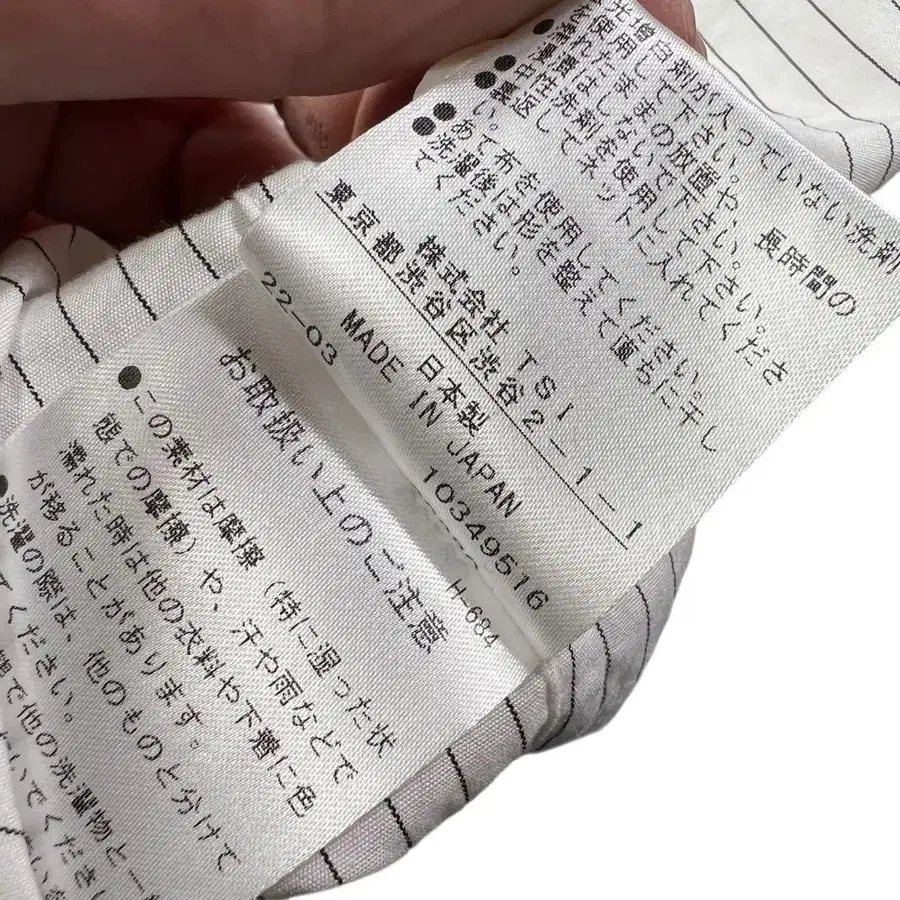 白剤が入っていない洗剤
して下さい。 長時間の
ままの放置や、
はしないで下さい。
洗剤を使用して下さい。
ネットに入れてくださ
い。
●あて布を使用してください。
●洗濯後は形を整えて直ちに干し
てください。
株式会社 TSI
東京都渋谷区渋谷2-1-1
日本製
MADE IN JAPAN
22-03
10349516
H-684
お取扱い上のご注意
●この素材は摩擦(特に湿った状
態での摩擦)や、汗や雨などで
濡れた時は他の衣料や下着に色
が移ることがあります。
●洗濯の際は、他のものと分けて
てください。
で他の洗濯物と一
いでくださ